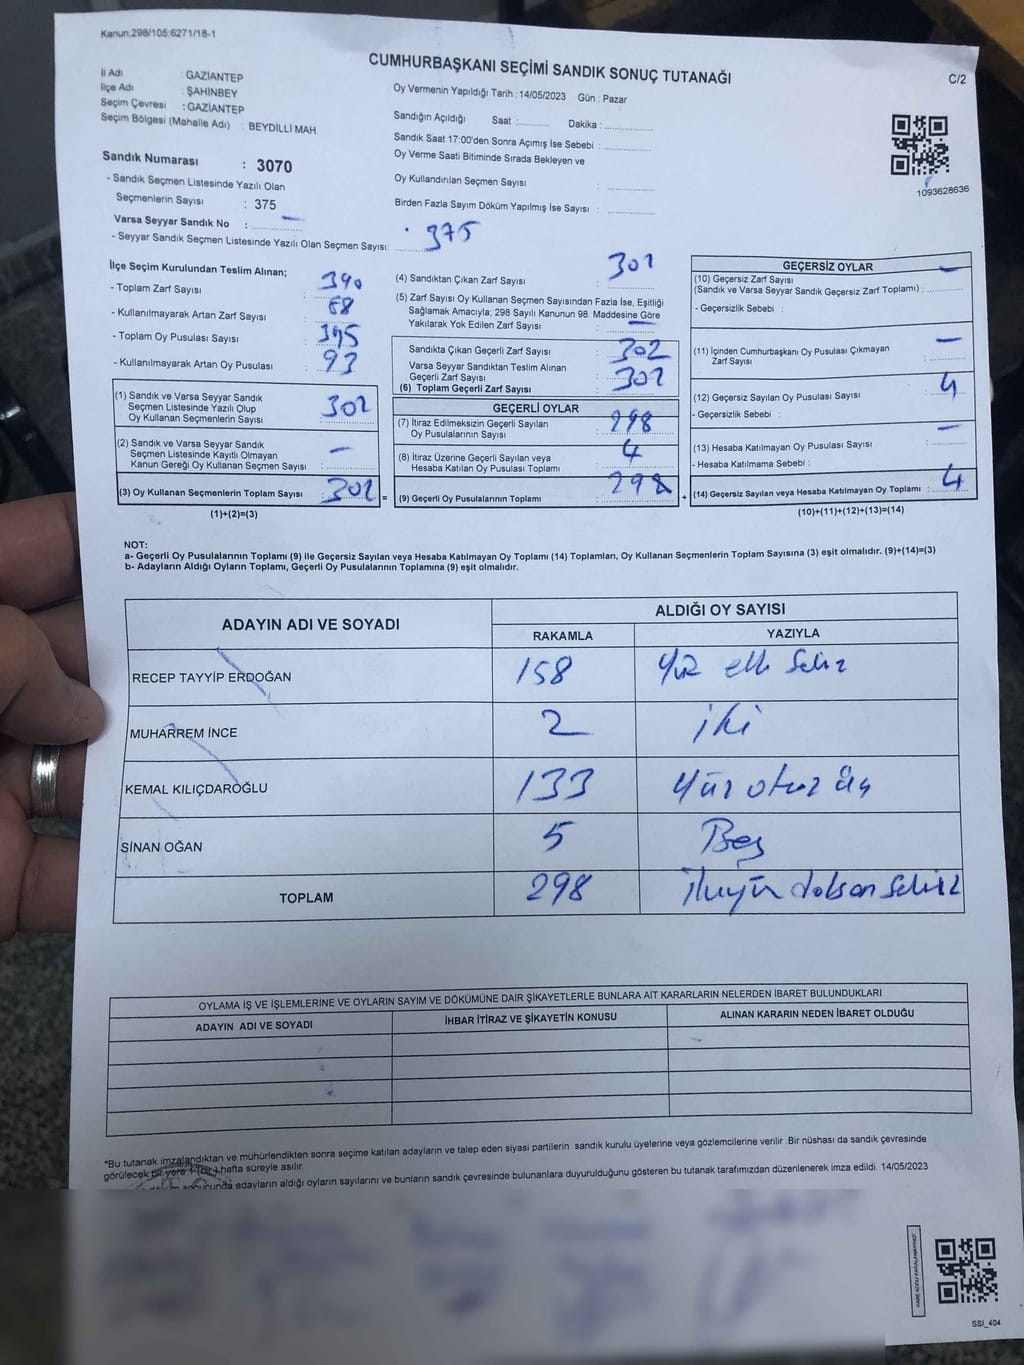 Kanun,298/105;6271/18-1
CUMHURBAŞKANI SEÇİMİ SANDIK SONUÇ TUTANAĞI
C/2
İl Adı : GAZİANTEP
İlçe Adı : ŞAHİNBEY
Seçim Çevresi : GAZİANTEP
Seçim Bölgesi (Mahalle Adı) : BEYDİLLİ MAH.
Sandık Numarası : 3070
- Sandık Seçmen Listesinde Yazılı Olan
Seçmenlerin Sayısı : 375
Varsa Seyyar Sandık No : –
- Seyyar Sandık Seçmen Listesinde Yazılı Olan Seçmen Sayısı: 375
Oy Vermenin Yapıldığı Tarih : 14/05/2023 Gün : Pazar
Sandığın Açıldığı Saat :........... Dakika :................
Sandık Saat 17:00'den Sonra Açımış İse Sebebi :................
Oy Verme Saati Bitiminde Sırada Bekleyen ve
Oy Kullandırılan Seçmen Sayısı :................
Birden Fazla Sayım Döküm Yapılmış İse Sayısı :................
1093628636
İlçe Seçim Kurulundan Teslim Alınan;
- Toplam Zarf Sayısı : 390
- Kullanılmayarak Artan Zarf Sayısı : 88
- Toplam Oy Pusulası Sayısı : 395
- Kullanılmayarak Artan Oy Pusulası : 93
(1) Sandık ve Varsa Seyyar Sandık
Seçmen Listesinde Yazılı Olup
Oy Kullanan Seçmenlerin Sayısı : 302
(2) Sandık ve Varsa Seyyar Sandık
Seçmen Listesinde Kayıtlı Olmayan
Kanun Gereği Oy Kullanan Seçmen Sayısı : –
(3) Oy Kullanan Seçmenlerin Toplam Sayısı : 302 =
(1)+(2)=(3)
(4) Sandıktan Çıkan Zarf Sayısı : 302
(5) Zarf Sayısı Oy Kullanan Seçmen Sayısından Fazla İse, Eşitliği
Sağlamak Amacıyla; 298 Sayılı Kanunun 98. Maddesine Göre
Yakılarak Yok Edilen Zarf Sayısı : –
Sandıkta Çıkan Geçerli Zarf Sayısı : 302
Varsa Seyyar Sandıktan Teslim Alınan
Geçerli Zarf Sayısı :
(6) Toplam Geçerli Zarf Sayısı : 302
GEÇERLİ OYLAR
(7) İtiraz Edilmeksizin Geçerli Sayılan
Oy Pusulalarının Sayısı : 298
(8) İtiraz Üzerine Geçerli Sayılan veya
Hesaba Katılan Oy Pusulası Toplamı : 4
(9) Geçerli Oy Pusulalarının Toplamı : 298 +
GEÇERSİZ OYLAR
(10) Geçersiz Zarf Sayısı –
(Sandık ve Varsa Seyyar Sandık Geçersiz Zarf Toplamı) :
- Geçersizlik Sebebi :
(11) İçinden Cumhurbaşkanı Oy Pusulası Çıkmayan
Zarf Sayısı : –
(12) Geçersiz Sayılan Oy Pusulası Sayısı : 4
- Geçersizlik Sebebi :
(13) Hesaba Katılmayan Oy Pusulası Sayısı : –
- Hesaba Katılmama Sebebi :
(14) Geçersiz Sayılan veya Hesaba Katılmayan Oy Toplamı : 4
(10)+(11)+(12)+(13)=(14)
NOT:
a- Geçerli Oy Pusulalarının Toplamı (9) ile Geçersiz Sayılan veya Hesaba Katılmayan Oy Toplamı (14) Toplamları, Oy Kullanan Seçmenlerin Toplam Sayısına (3) eşit olmalıdır. (9)+(14)=(3)
b- Adayların Aldığı Oyların Toplamı, Geçerli Oy Pusulalarının Toplamına (9) eşit olmalıdır.
ADAYIN ADI VE SOYADI
ALDIĞI OY SAYISI
RAKAMLA YAZIYLA
RECEP TAYYİP ERDOĞAN 158 Yüz elli Sekiz
MUHARREM İNCE 2 iki
KEMAL KILIÇDAROĞLU 133 Yüz otuz üç
SİNAN OĞAN 5 Beş
TOPLAM 298 ikiyüz doksan Sekiz
OYLAMA İŞ VE İŞLEMLERİNE VE OYLARIN SAYIM VE DÖKÜMÜNE DAİR ŞİKAYETLERLE BUNLARA AİT KARARLARIN NELERDEN İBARET BULUNDUKLARI
ADAYIN ADI VE SOYADI İHBAR İTİRAZ VE ŞİKAYETİN KONUSU ALINAN KARARIN NEDEN İBARET OLDUĞU
*Bu tutanak imzalandıktan ve mühürlendikten sonra seçime katılan adayların ve talep eden siyasi partilerin sandık kurulu üyelerine veya gözlemcilerine verilir .Bir nüshası da sandık çevresinde
görülecek bir yere 1 (bir) hafta süreyle asılır.
sonucunda adayların aldığı oyların sayılarını ve bunların sandık çevresinde bulunanlara duyurulduğunu gösteren bu tutanak tarafımızdan düzenlenerek imza edildi. 14/05/2023
SSI_404